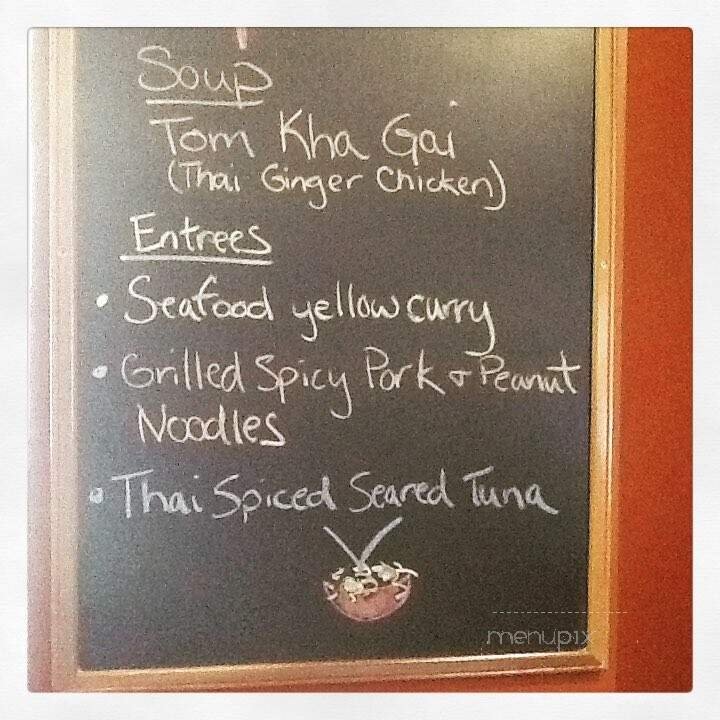 Soup
Tom Kha Gai
(Thai Ginger Chicken)
Entrees
• Seafood yellow curry
• Grilled Spicy Pork + Peanut
Noodles
• Thai Spiced Seared Tuna
menupix